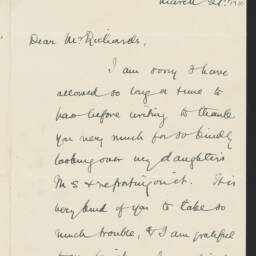 March 21st
Dear Mr Richards,
I am sorry I have
allowed so long a time to
pass before writing to thank
you very much for so kindly
looking over my daughter's
MS & reporting on it. It is
very kind of you to take so
much trouble, & I am grateful